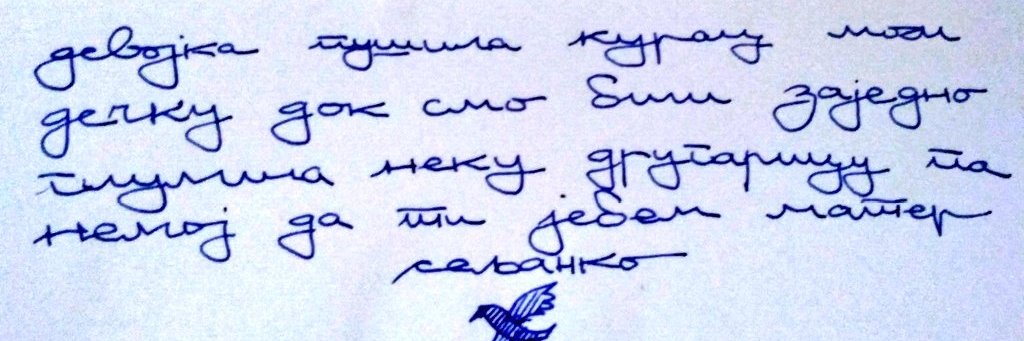 девојка пушила курац мом
дечку док смо били заједно
глумила неку другарицу па
немој да ти јебем матер
сељанко